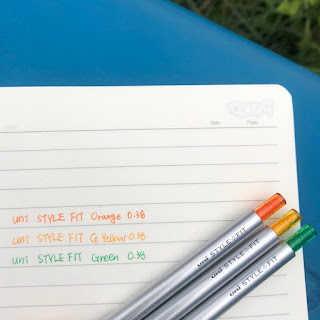 Date Page
uni STYLE FIT Orange 0.38
uni STYLE FIT G.Yellow 0.38
uni STYLE FIT Green 0.38
uni STYLE FIT
uni STYLE FIT
uni STYLE FIT